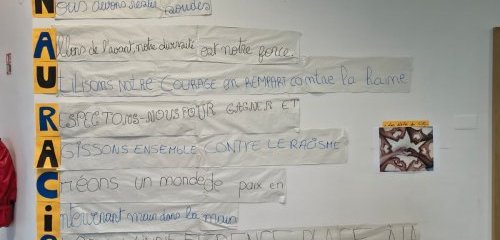 Nous devons rester soudés
Allons de l'avant, notre diversité est notre force.
UTILISONS NOTRE COURAGE EN REMPART contre la haine
RESPECTONS-NOUS POUR GAGNER ET
AGISSONS ENSEMBLE CONTRE LE RACISME
Créons un monde de paix en
intervenant main dans la main